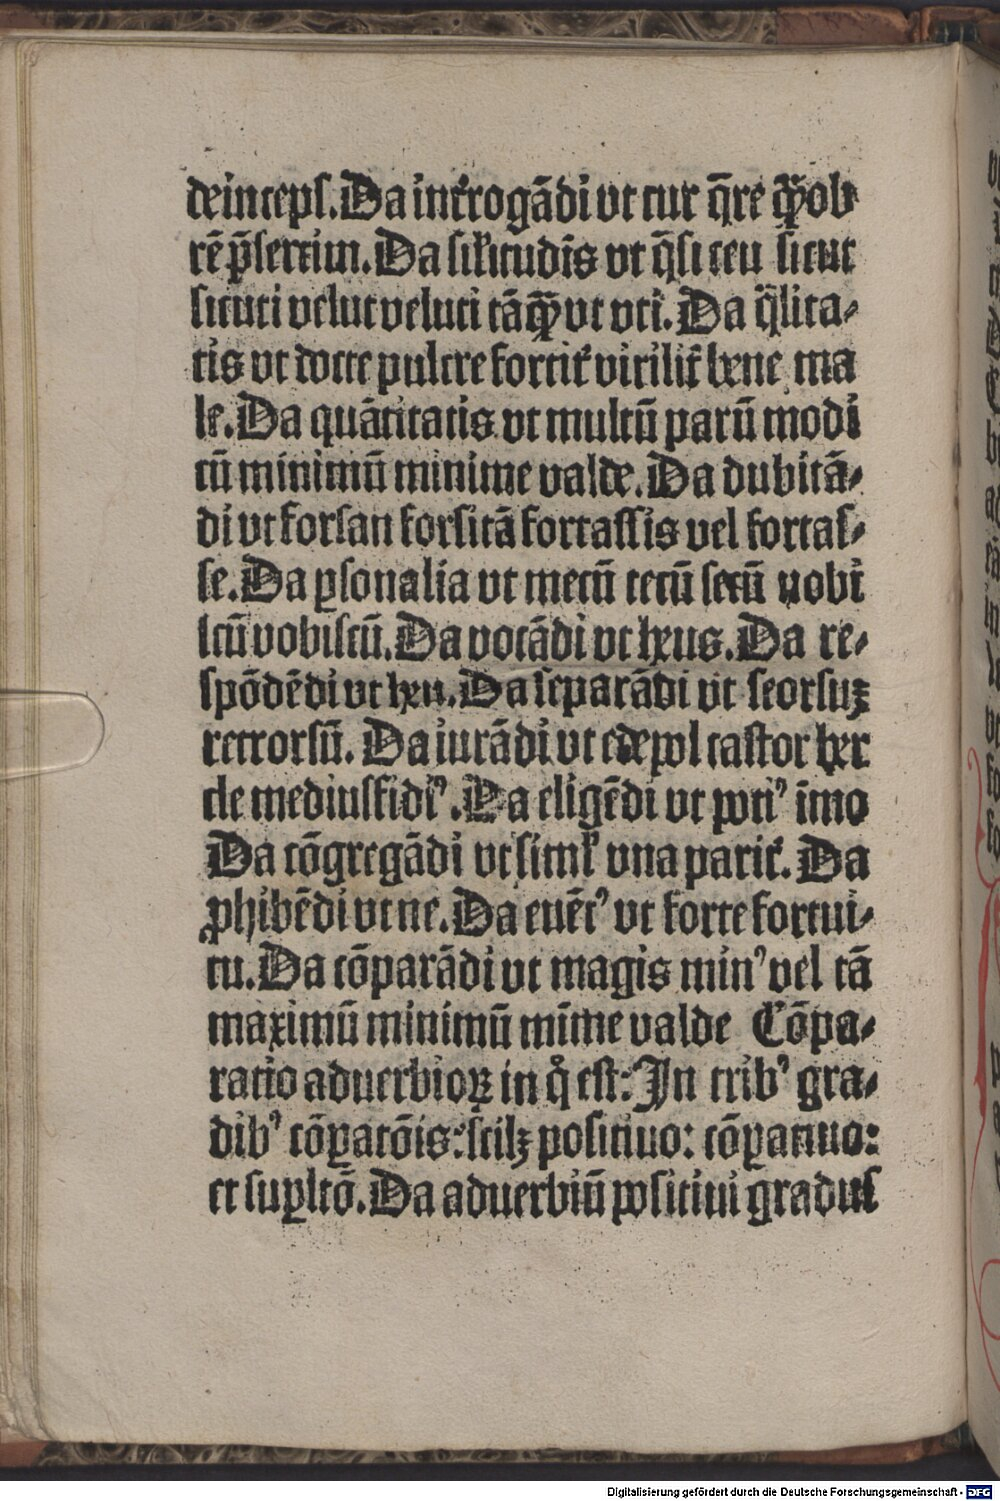 deinceps. Da int̄rogādi vt cur q̄re q̄ꝫob
rē p̄sertim. Da sil̄itudīs vt q̄si ceu sicut
sicuti velut veluti tāq̄ꝫ vt vti. Da q̄lita⸗
tis vt docte pulcre fortit̄ virilit̄ bene ma
le. Da quātitatis vt multū parū modi
cū minimū minime valde. Da dubitā⸗
di vt forsan forsitā fortassis vel fortas⸗
se. Da ꝑsonalia vt mecū tecū secū nobi
scū vobiscū. Da vocādi vt heus. Da re⸗
spōdēdi vt heu. Da separādi vt seorsuꝫ
retrorsū. Da iurādi vt edepol castor her
cle mediusfidiꝰ. Da eligēdi vt potiꝰ īmo
Da cōgregādi vt siml̄ vna parit̄. Da
ꝓhibēdi vt ne. Da euētꝰ vt forte fortui⸗
tu. Da cōparādi vt magis minꝰ vel tā
maximū minimū mīme valde Cōpa⸗
ratio aduerbioꝝ in q̊ est: In tribꝰ gra⸗
dibꝰ cōꝑatōis: scilꝫ positiuo: cōꝑatiuo:
et suꝑltō. Da aduerbiū positiui gradus
Digitalisierung gefördert durch die Deutsche Forschungsgemeinschaft - DFG